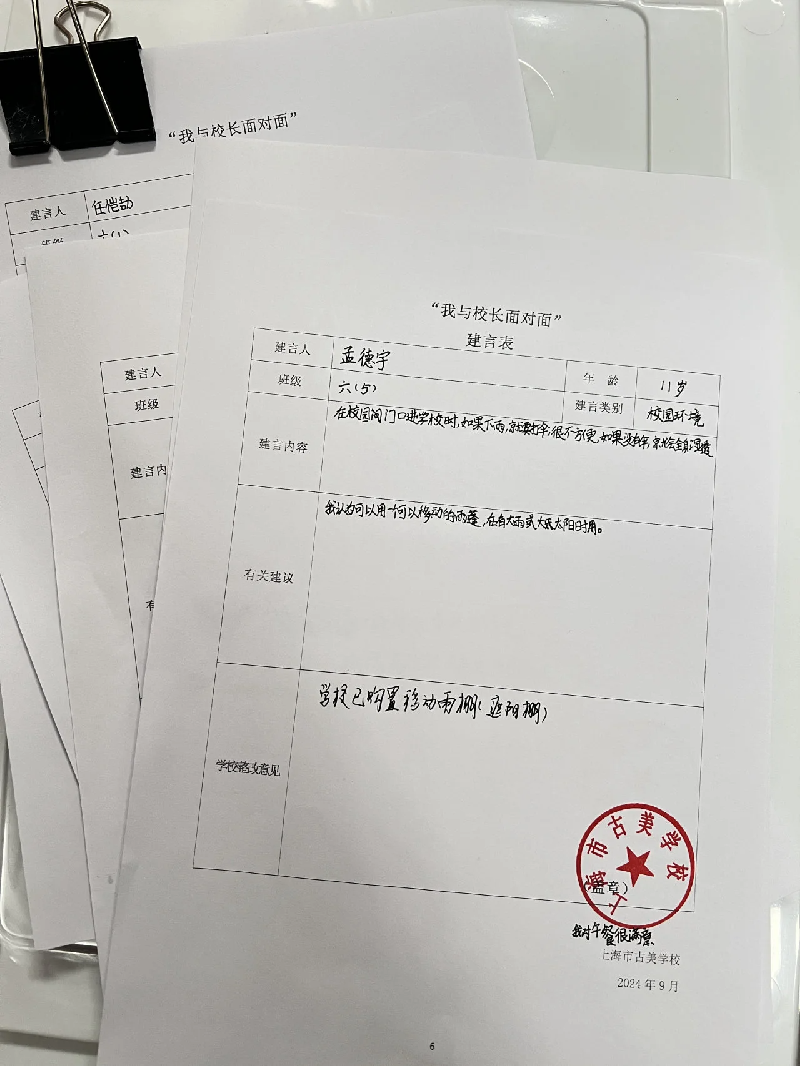 “我与校长面对面”
建言人 任恺劼
班级 六(1)
建言人
班级
建言内
有
“我与校长面对面”
建言表
建言人 孟德宇 年 龄 11岁
班级 六(5) 建言类别 校园环境
建言内容 在校园闸门口进学校时,如果下雨,就要打伞,很不方便,如果没有伞,就会全身湿透
有关建议 我认为可以用一个可以移动的雨蓬,在有大雨或大太阳时用。
学校整改意见 学校已购置移动雨棚(遮阳棚)
上海市古美学校
(盖章)
我对午餐很满意
上海市古美学校
2024年9月
6